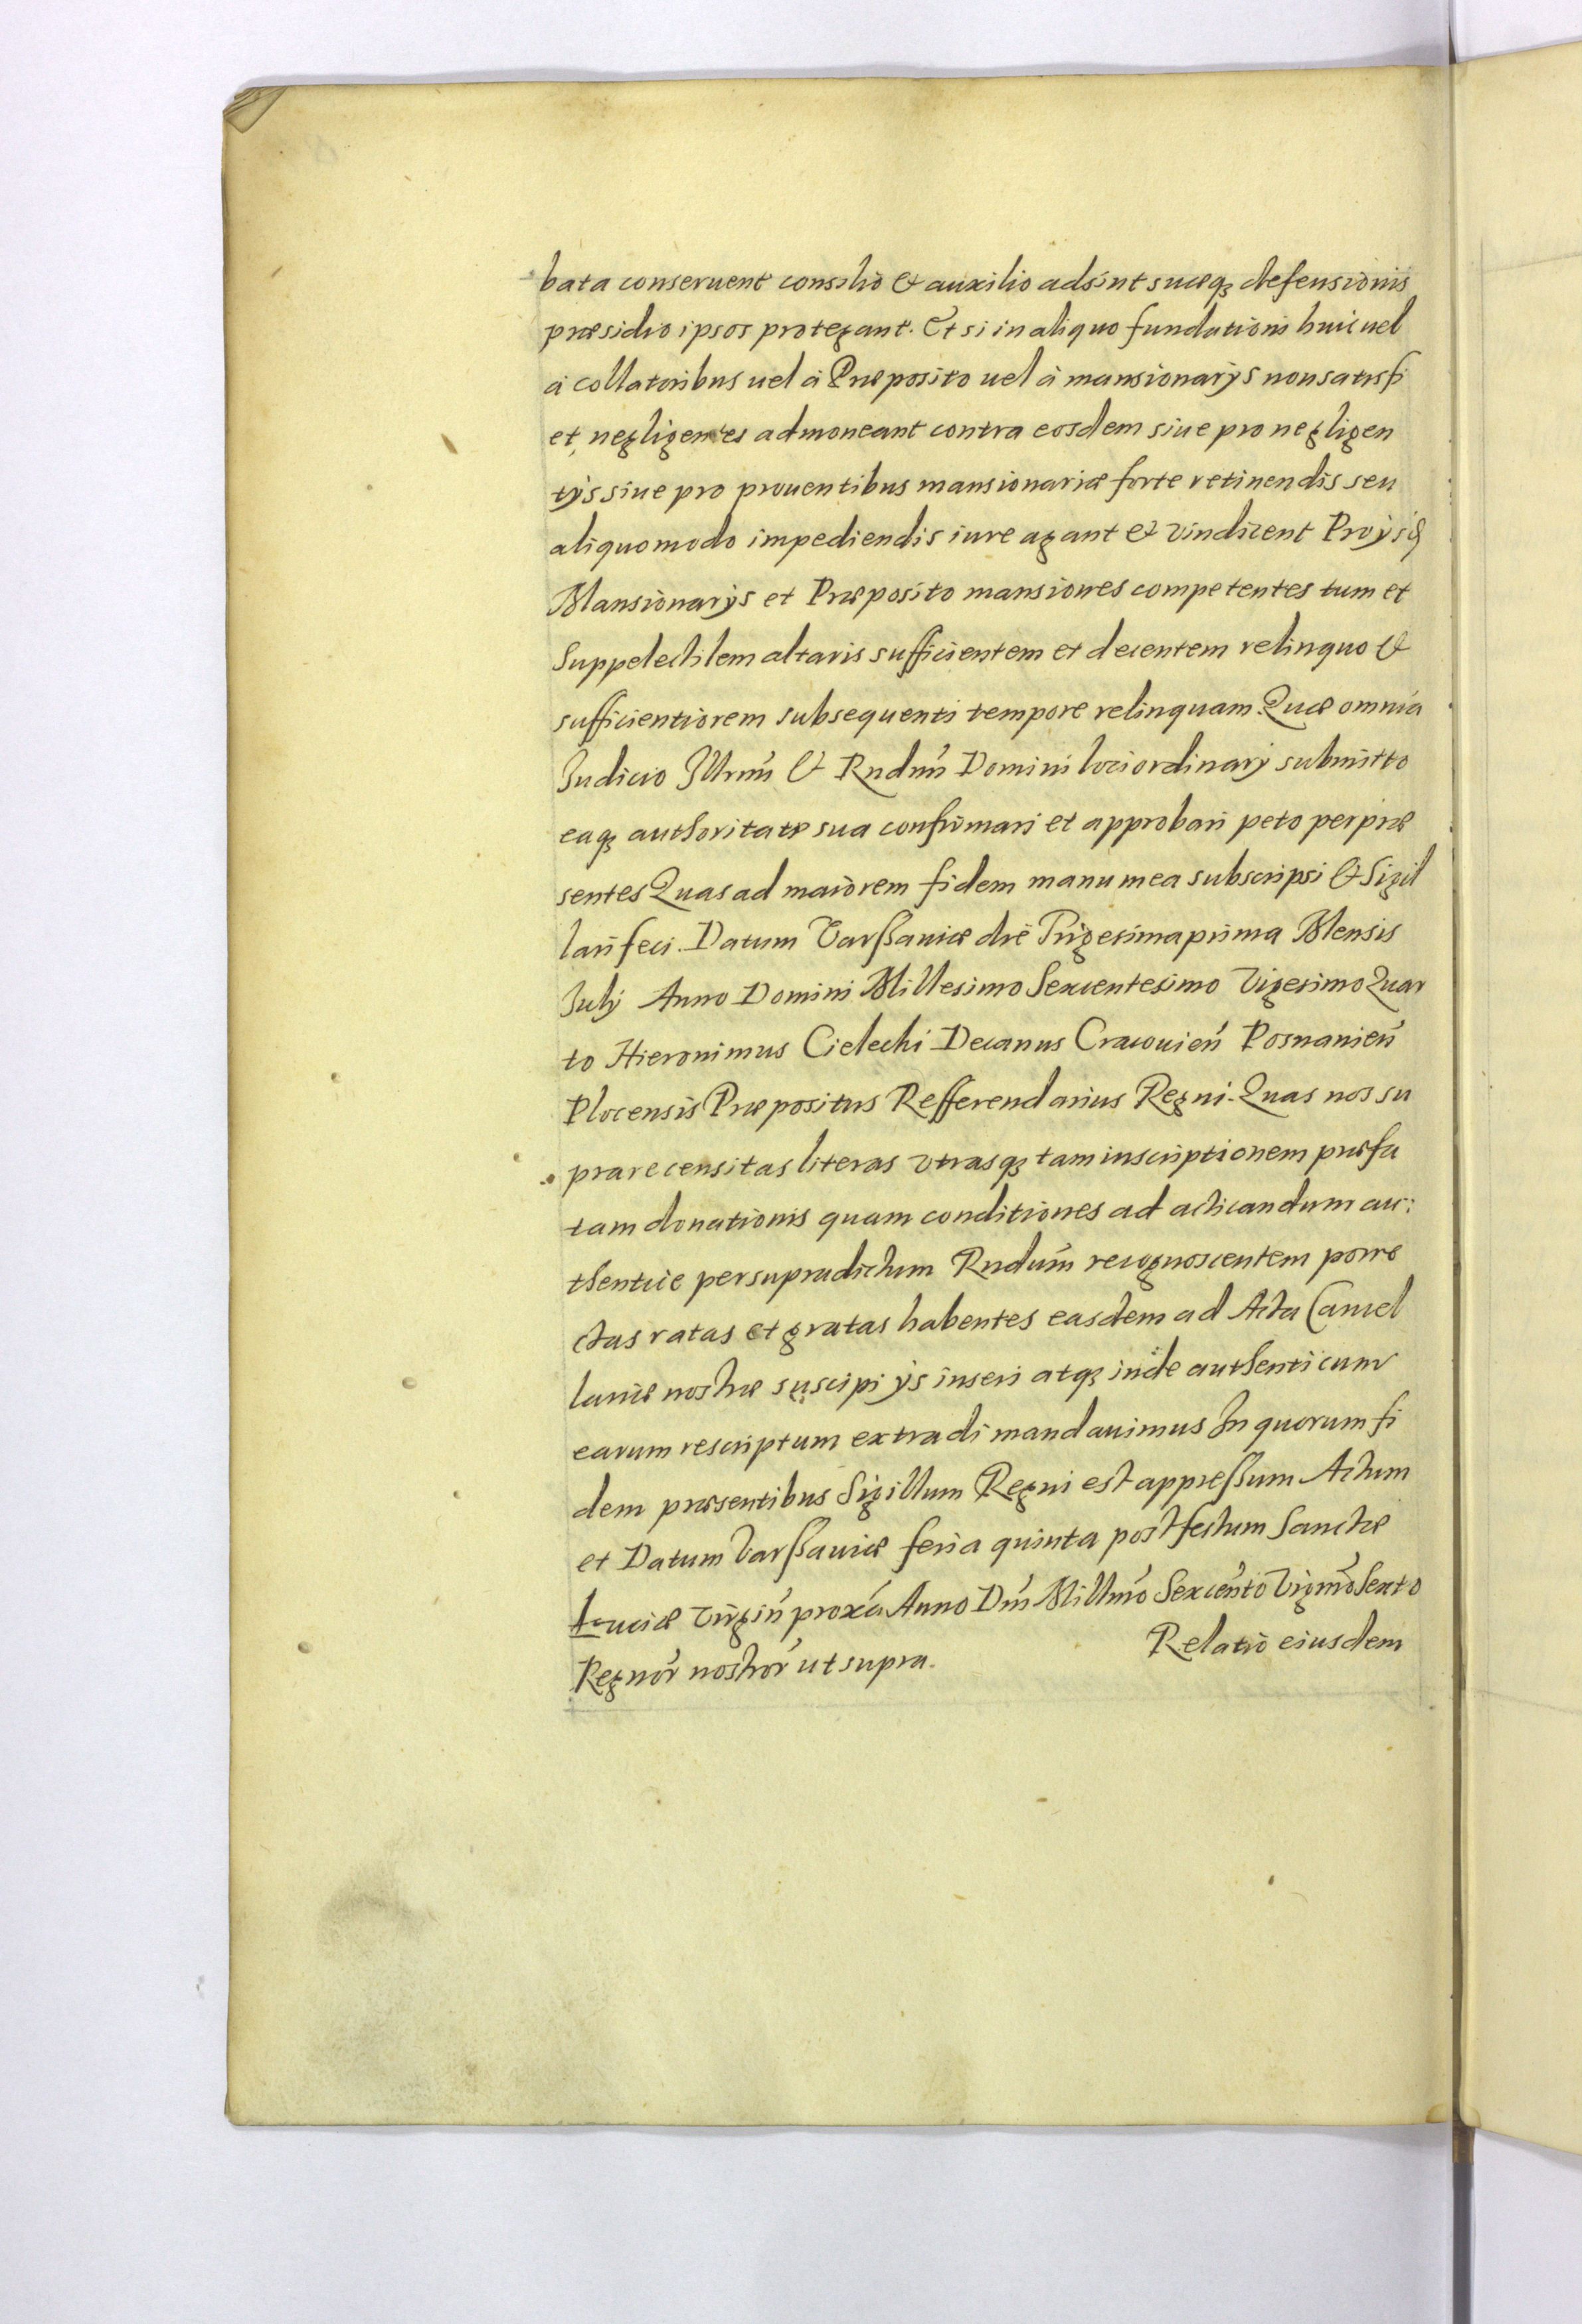 bata conseruent consilio & auxilio adsint suæq; defensionis
præsidio ipsos protegant. Et si in aliquo fundationi huic uel
à collatoribus uel à Præposito uel à mansionarijs non satisfi
et, negligentes admoneant contra eosdem siue pro negligen
tijs siue pro prouentibus mansionariæ forte retinendis seu
aliquo modo impediendis iure agant & vindicent Pro ijsq;
Mansionarijs et Præposito mansiones competentes tum et
Suppelectilem altaris sufficientem et decentem relinquo &
sufficientiorem subsequenti tempore relinquam. Quæ omnia
Judicio Jllrmi & Rndmi Domini loci ordinarij submitto
eaq; authoritate sua confirmari et approbari peto per præ
sentes Quas ad maiorem fidem manu mea subscripsi & Sigil
lari feci. Datum Varssauiæ die Trigesima prima Mensis
Julij Anno Domini Millesimo Sexcentesimo Vigesimo Quar
to Hieronimus Cielecki Decanus Cracouien̄ Posnanien̄
Plocensis Præpositus Refferendarius Regni. Quas nos su
prarecensitas literas vtrasq; tam inscriptionem præfa
tam donationis quam conditiones ad acticandum au:
thentice per supradictum Rndum̄ recognoscentem porre
ctas ratas et gratas habentes easdem ad Acta Cancel
lariæ nostræ suscipi ijs inseri atq; inde authenticum
earum rescriptum extradi mandauimus In quorum fi
dem præsentibus Sigillum Regni est appressum Actum
et Datum Varssauiæ feria quinta post festum Sanctæ
Luciæ Virgin̄ proxa Anno Dn̄i Millmo Sexcento Vigmo Sexto
Regnor̄ nostror̄ ut supra. Relatio eiusdem